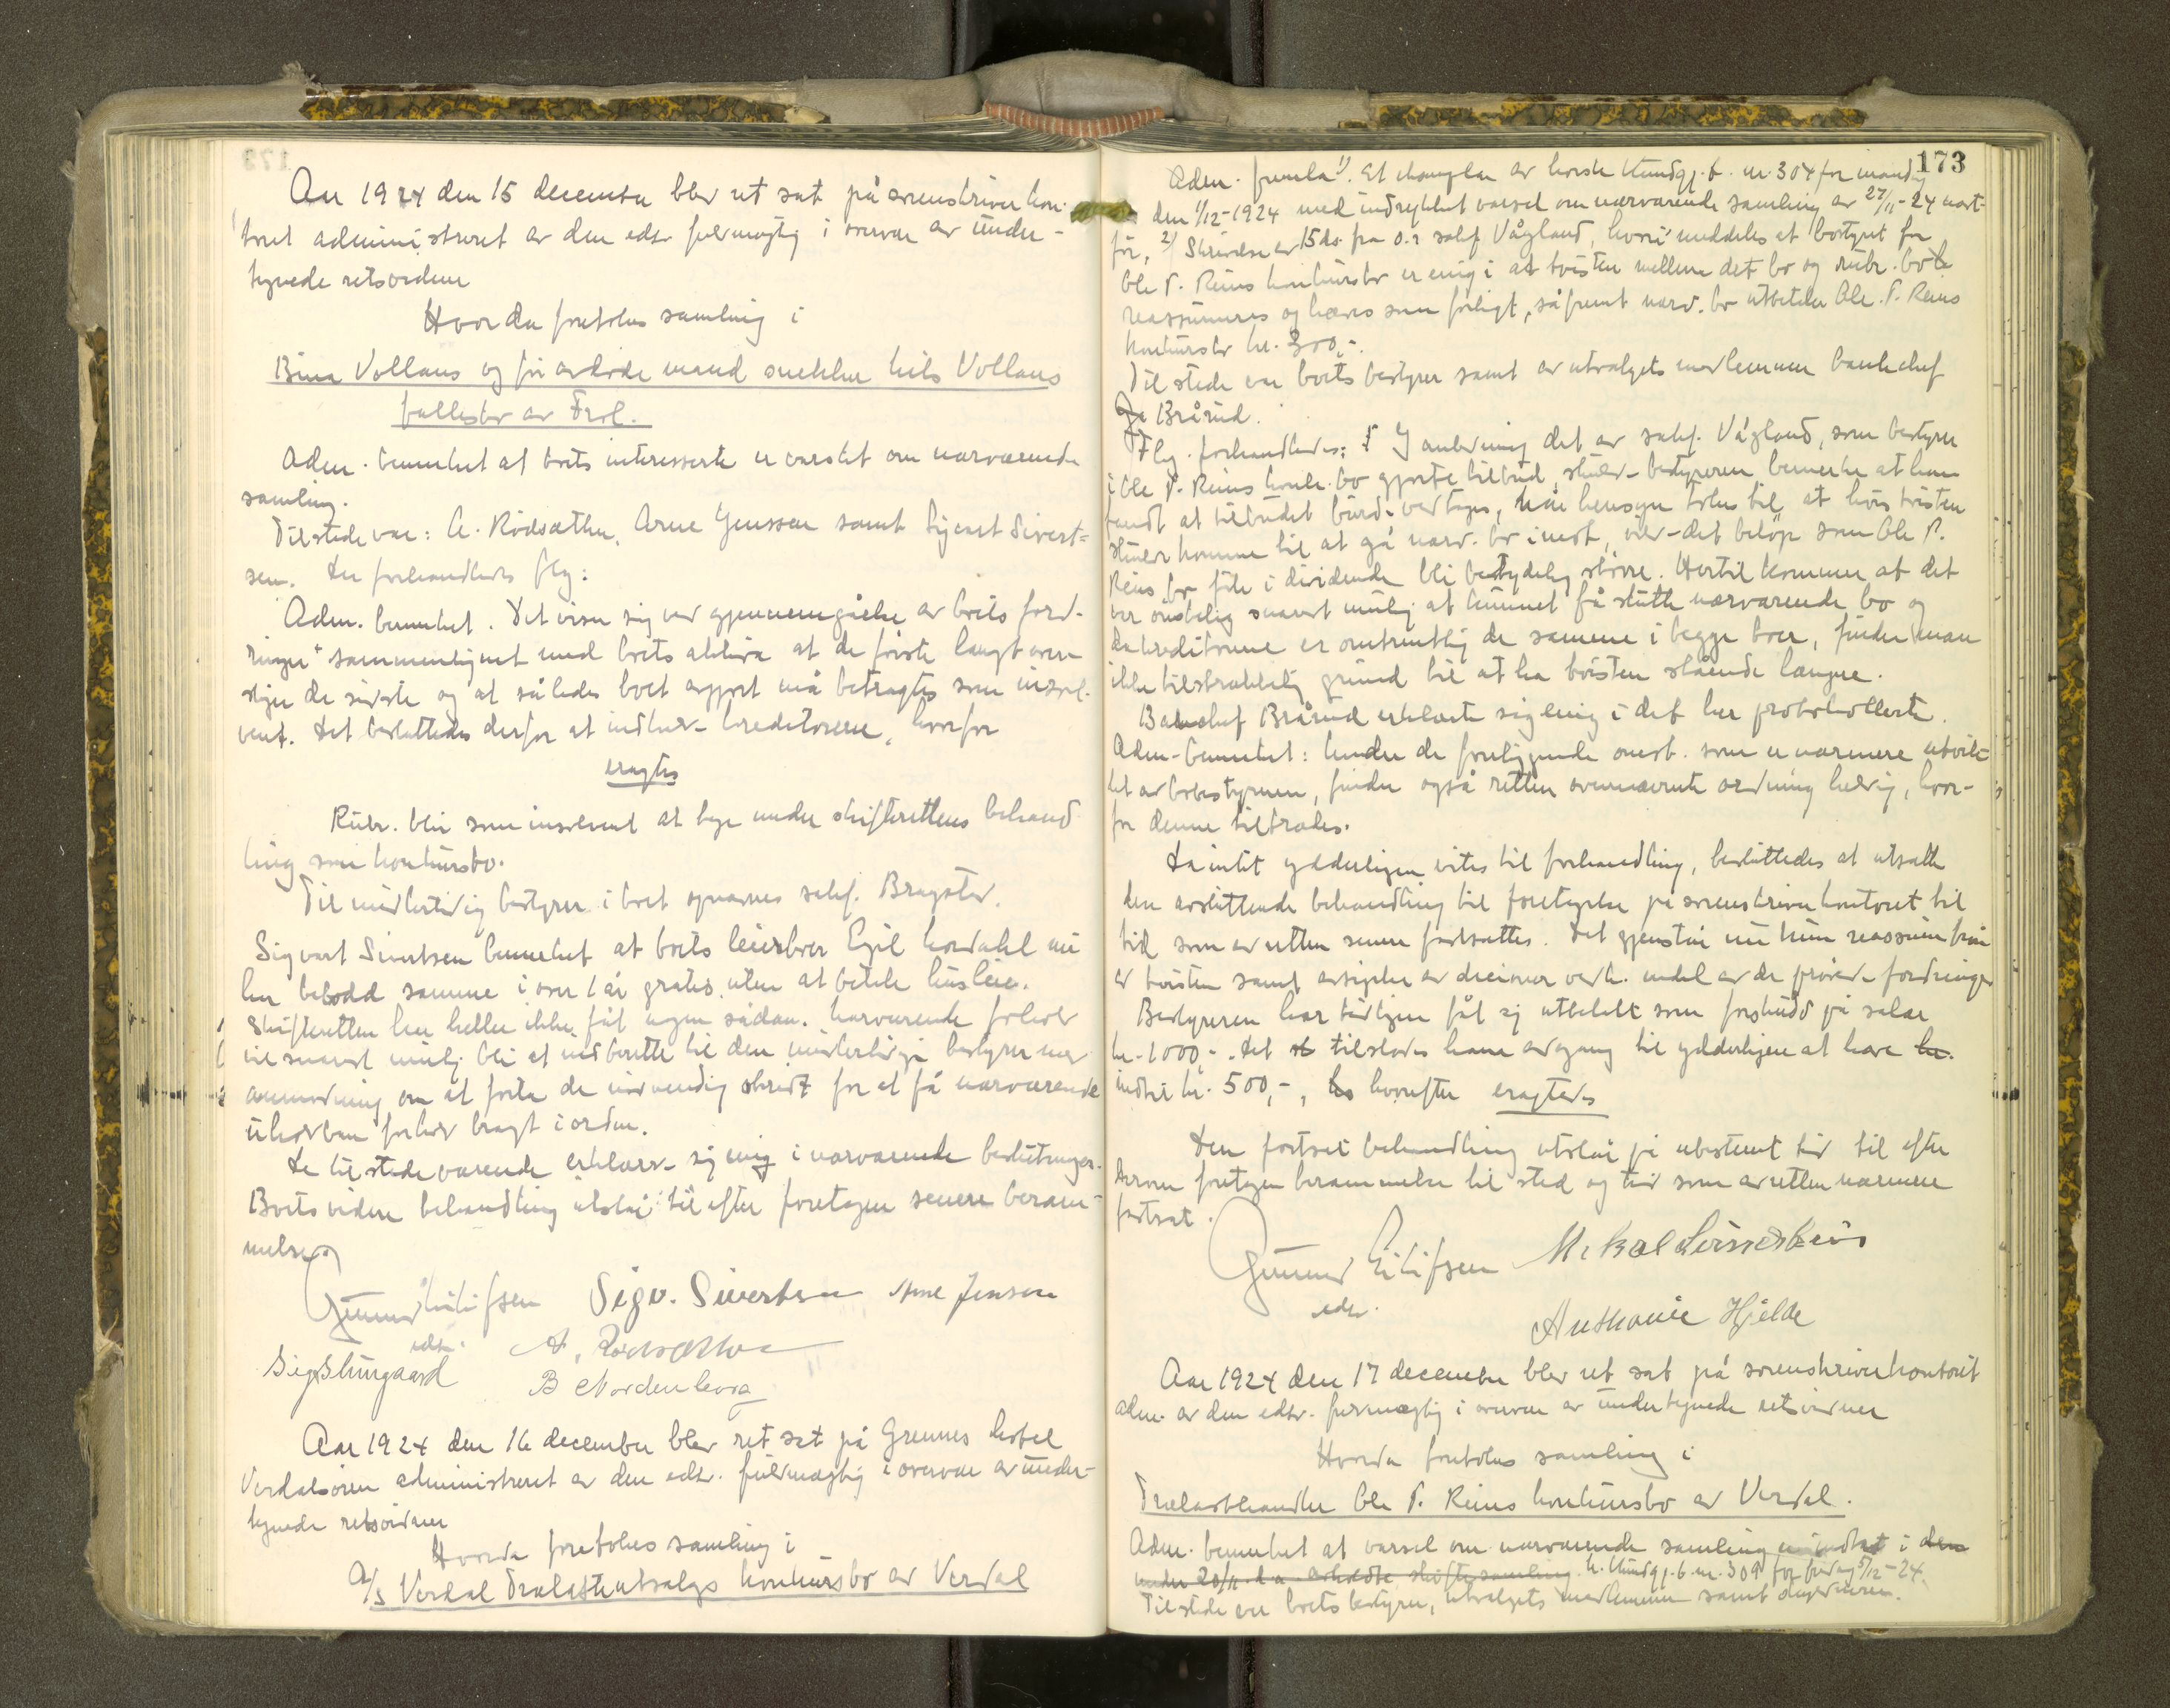 Aar 1924 den 15 december blev ret sat på sorenskriverkon-
toret administreret av den edsv. fuldmægtig i overvær av under-
tegnede retsvidner
Hvorda foretokes samling i
Bina Vollans og før avdøde mand snekker Nils Vollans
fællesbo av Frol.
Adm. bemerket at boets interesserte er varslet om nærværende
samling.
Tilstede var: A. Rodsæther, Arne Jenssen samt Sigvart Sivert-
sen. Der forhandledes flg:
Adm. bemerket. Det viser sig ved gjennemgåelse av boets ford-
ringer sammenlignet med boets aktiva at de første langt over-
stiger de sidste og at således boet avgjort må betragtes som insol-
vent. Det besluttedes derfor at indkalde kreditorene, hvorfor
eragtes
Rubr. blir som insolvent at tage under skifterettens behand
ling som konkursbo.
Til midlertidig bestyrer i boet opnævnes sakf. Bragstad.
Sigvart Sivertsen bemerket at boets leieboer Egil Nordahl nu
har bebodd samme i over 1 år gratis uten at betale husleie.
Skifteretten har heller ikke fåt nogen sådan. Nærværende forhold
vil snarest mulig bli at indberette til den midlertidige bestyrer med
anmodning om at foreta de nødvendig skridt for at få nærværende
uholdbare forhold bragt i orden.
De tilstedeværende erklærte sig enig i nærværende beslutninger.
Boets videre behandling utstår til efter foretagen senere beram-
melse.
Gunnar Eilifsen Sigv. Sivertsen Arne Jenssen
edsv. A. Rodsæther
B Nordenborg
Aar 1924 den 16 december blev ret sat på Grennes hotel
Verdalsøren administreret av den edsv. fuldmægtig i overvær av under-
tegnede retsvidner
Hvorda foretokes samling i
A/S Verdal Trælastutsalgs konkursbo av Verdal
173
Adm. fremla 1). Et exemplar av norske Kundgj.t. nr. 304 for mandag
den 1/12-1924 med indrykket varsel om nærværende samling av 27/11-24
før, 2/ Skrivelse av 15 ds. fra o.r. sakf. Vågland, hvori meddeles at bostyret for
Ole P. Reins konkursbo er enig i at tvisten mellem det bo og rubr. bo
reassumeres og hæves som forligt, såfremt nærv. bo utbetaler Ole P. Reins
konkursbo kr. 300,-.
Tilstede var boets bestyrer samt av utvalgets medlemmer bankchef
Brårud.
Flg. forhandledes: I anledning det av sakf. Vågland, som bestyrer
i Ole P. Reins konk.bo gjorte tilbud, skulde bestyreren bemerke at han
fandt at tilbudet burde vedtages, når hensyn tokes til at hvis tvisten
skulde komme til at gå nærv. bo imot, vilde det beløp som Ole P.
Reins bo fik i dividende bli betydelig større. Hertil kommer at det
var ønskelig snarest mulig at kunnet få slutte nærværende bo og
da kreditorene er omtrentlig de samme i begge boer, finder man
ikke tilstrækkelig grund til at ha tvisten stående længre.
Bankchef Brårud erklærte sig enig i det her protokollerte.
Adm. bemerket: Under de foreliggende omst. som er nærmere utvik-
let av bobestyreren, finder også retten ovennævnte ordning heldig, hvor-
for denne tiltrædes.
Da intet yderligere vites til forhandling, besluttedes at utsætte
den avsluttende behandling til foretagelse på sorenskriverkontoret til
tid som av retten senere fastsættes. Det gjenstår nu kun reassumption
av tvisten samt avsigelse av decisioner vedk. endel av de prøvede fordringer
Bestyreren har tidligere fåt sig utbetalt som forskudd på salær
kr. 1000,-. Det tilstedes ham adgang til yderligere at hæve
indtil kr. 500,-, hvorefter eragtedes
Den fortsat behandling utstår på ubestemt tid til efter
derom foretagen berammelse til sted og tid som av retten nærmere
fastsat.
Gunnar Eilifsen
edsv.
Anthonie Hjelde
Aar 1924 den 17 december blev ret sat på sorenskriverkontoret
adm. av den edsv. fuldmægtig i overvær av undertegnede retsvidner
Hvorda foretokes samling i
Trælasthandler Ole P. Reins konkursbo av Verdal.
Adm. bemerket at varsel om nærværende samling er indtat i den
under 20/11 d.a. avholdte skiftesamling. n. Kundgj.t. nr. 309 for fredag 5/12-24.
Tilstede var boets bestyrer, utvalgets medlemmer samt